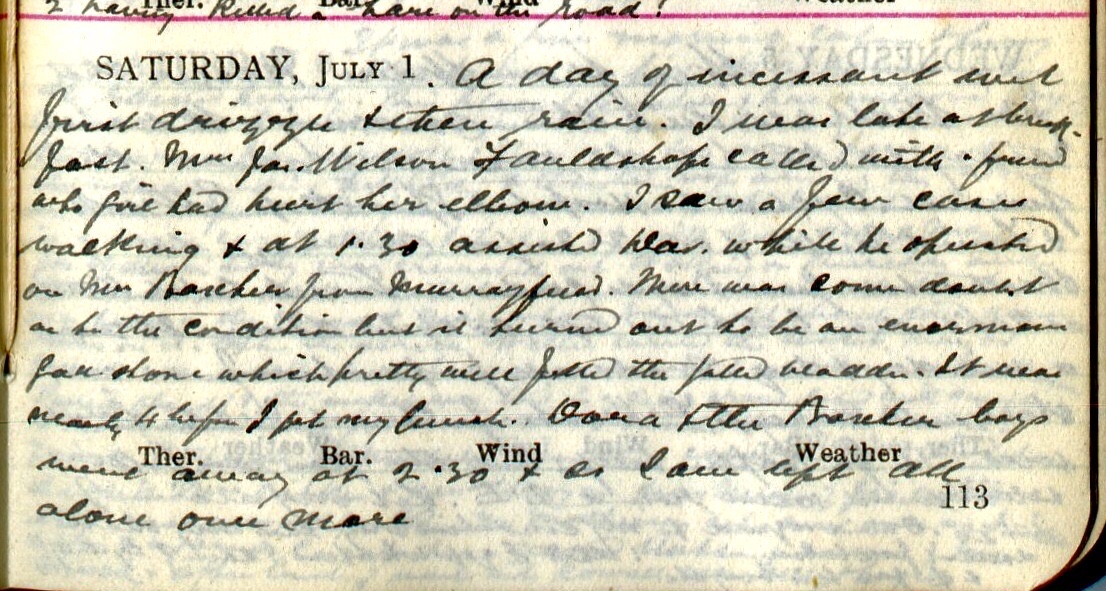 & having killed a hare on the road!
Ther. Bar. Wind Weather
SATURDAY, JULY 1. A day of incessant wet
first drizzle & then rain. I was late at break-
fast. Mrs Jas. Wilson Fauldshope called with a friend
who had hurt her elbow. I saw a few cases
walking & at 1.30 assisted while he operated
on Mrs from Murrayfield. There was some doubt
as to the condition but it turned out to be an enormous
gall stone which pretty well filled the gall bladder. It was
nearly 4 before I got my lunch. & the boys
Ther. Bar. Wind Weather
went away at 2.30 & so I am left all
113
alone once more